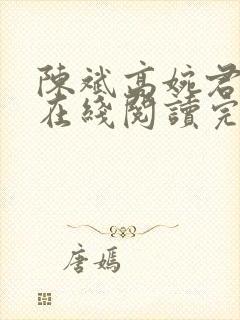 陳斌高婉君
在綫閱讀完
唐嫣